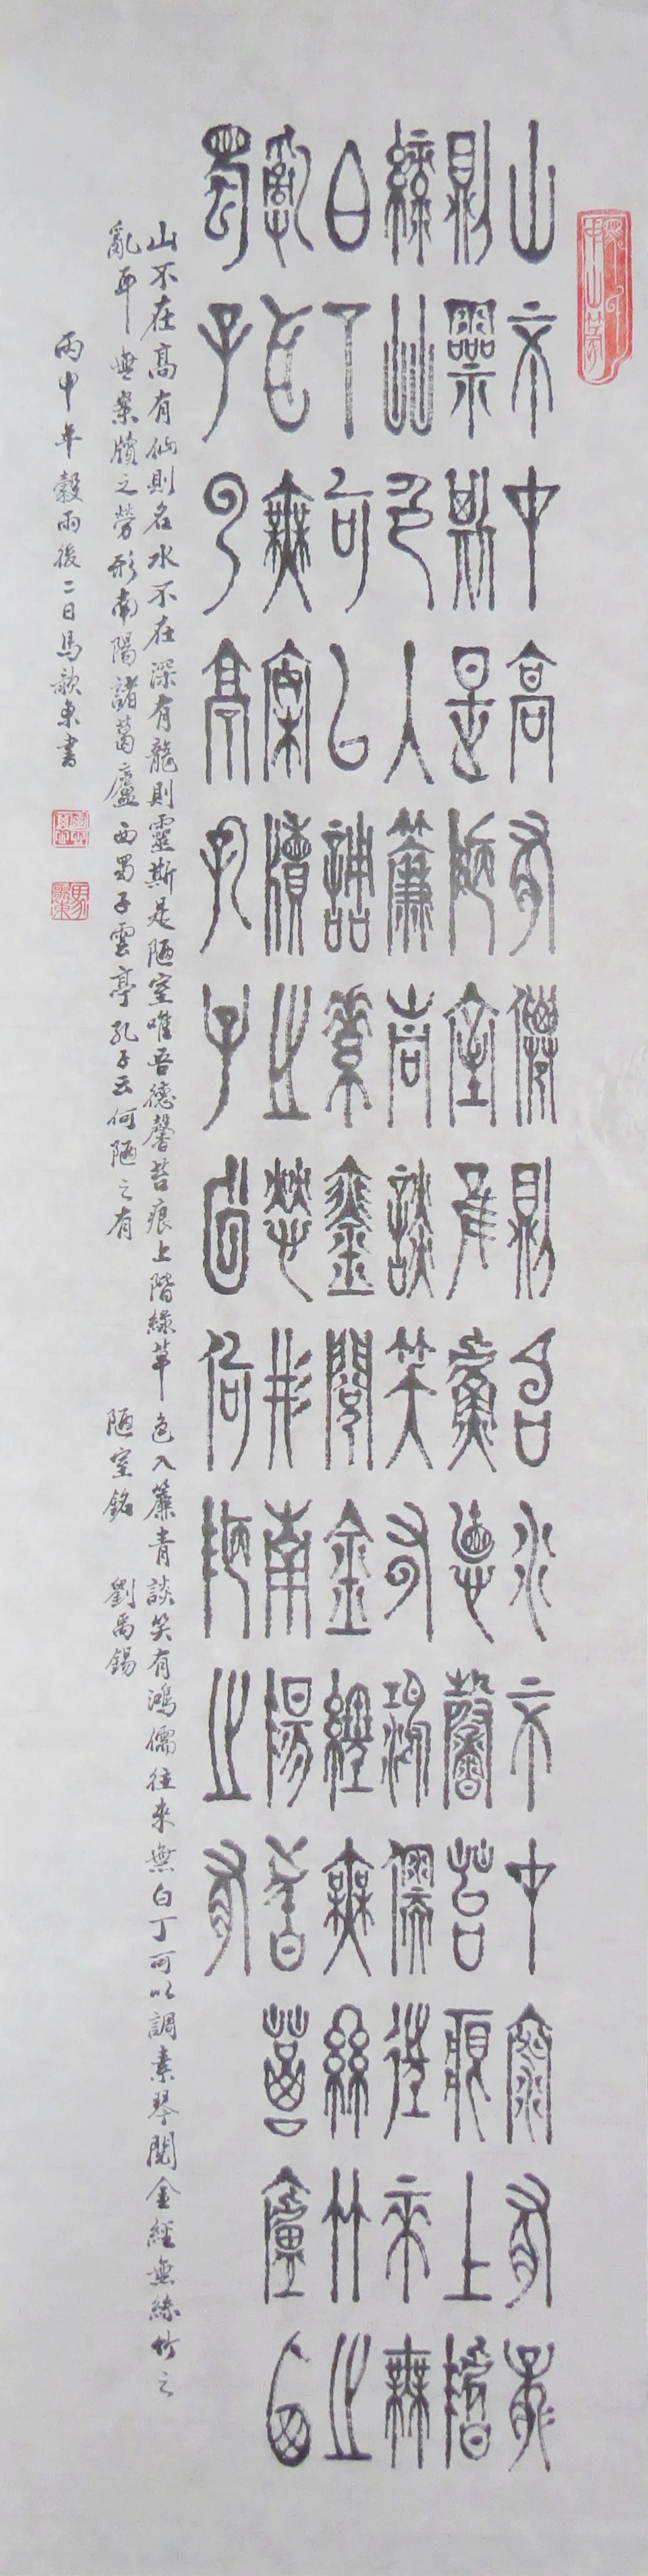 山不在高有僊則名水不在深有龍
則靈斯是陋室唯吾德馨苔痕上階
綠艸色入簾青談笑有鴻儒往來無
白丁可以調素琴閱金經無絲竹之
亂耳無案牘之勞形南陽諸葛廬西
蜀子雲亭孔子云何陋之有
山不在高有仙則名水不在深有龍則靈斯是陋室唯吾德馨苔痕上階綠草色入簾青談笑有鴻儒往來無白丁可以調素琴閱金經無絲竹之
亂耳無案牘之勞形南陽諸葛廬西蜀子雲亭孔子云何陋之有 陋室銘 劉禹錫
丙申年穀雨後二日馬歌東書